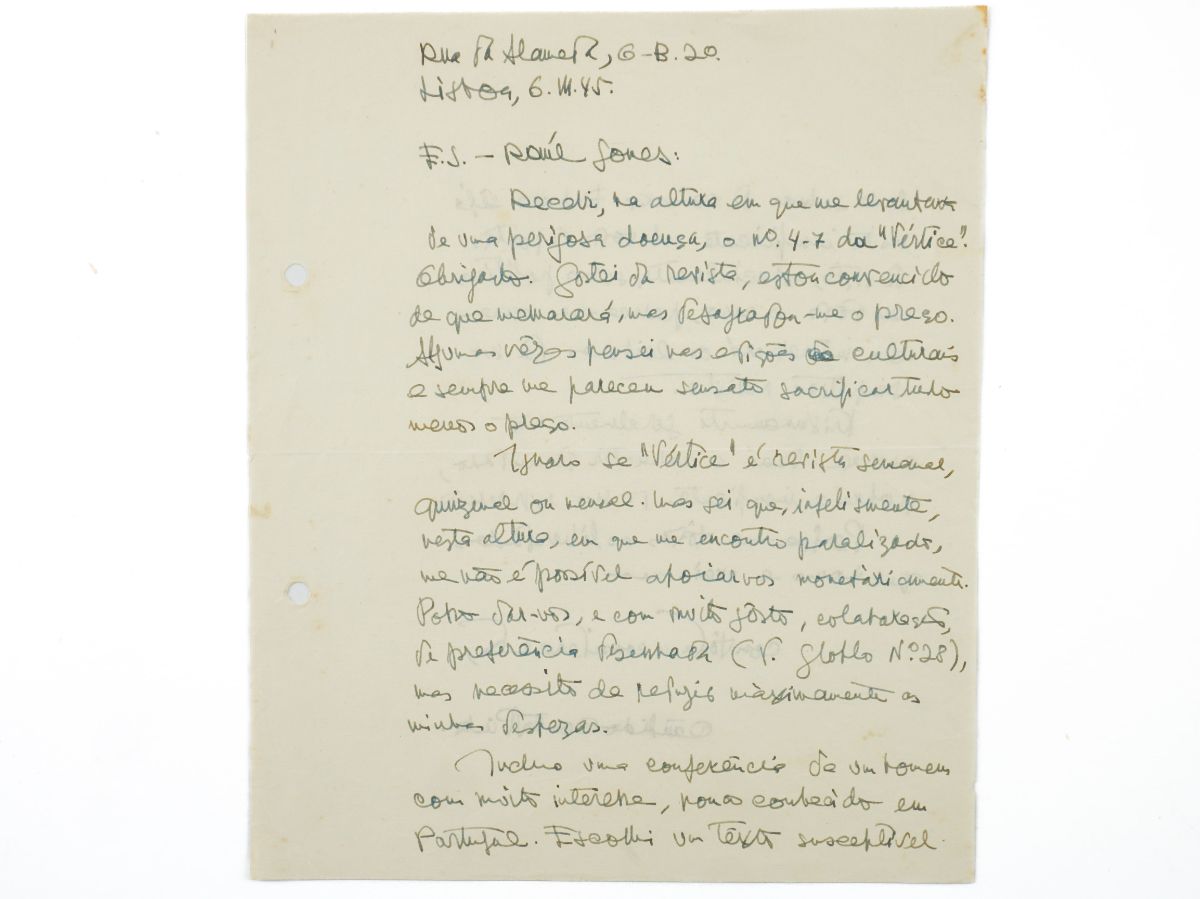 Rua da Alameda, 6-B. 20.
Lisboa, 6.III.45.
E.S. — Raúl Gomes:
Recebi, na altura em que me levantava
de uma perigosa doença, o nº. 4-7 da "Vértice".
Obrigado. Gostei da revista, estou convencido
de que melhorará, mas desagradou-me o preço.
Algumas vêzes pensei nas edições culturais
e sempre me pareceu sensato sacrificar tudo
menos o preço.
Ignoro se "Vértice" é revista semanal,
quinzenal ou mensal. Mas sei que, infelismente,
nesta altura, em que me encontro paralizado,
me não é possível apoiar-vos monetàriamente.
Posso dar-vos, e com muito gôsto, colaboração,
de preferência desenhada (V. Globo Nº.28),
mas necessito de reduzir màximamente as
minhas despezas.
Incluo uma conferência de um homem
com muito interesse, pouco conhecido em
Portugal. Escolhi um texto susceptível